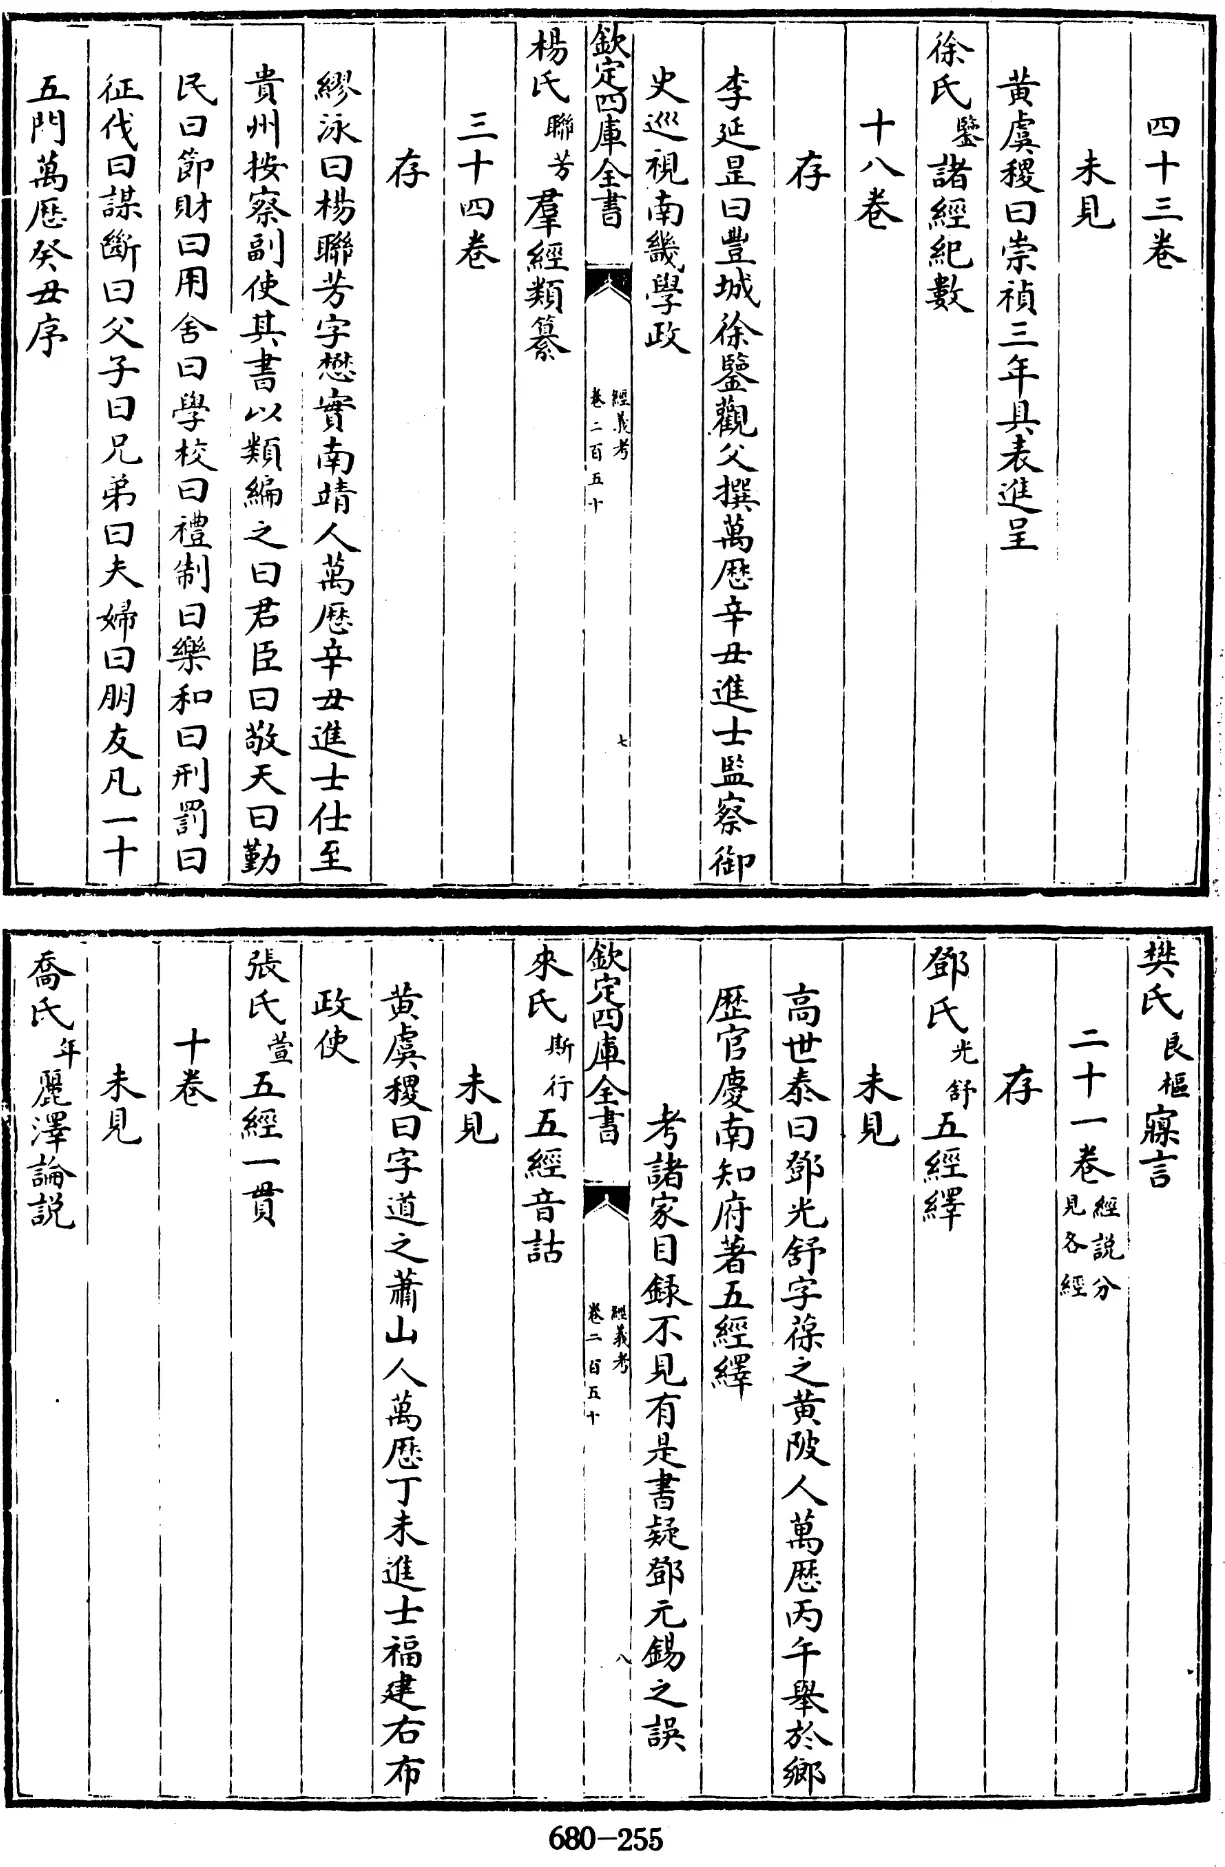 四十三卷
未見
黄虞稷曰崇禎三年具表進呈
徐氏鑒諸經紀數
十八卷
存
李延昰曰豐城徐鑒觀父撰萬厯辛丑進士監察御
史巡視南畿學政
欽定四庫全書
經義考
卷二百五十
七
楊氏聯芳羣經類纂
三十四卷
存
繆泳曰楊聯芳字懋實南靖人萬厯辛丑進士仕至
貴州按察副使其書以類編之曰君臣曰敬天曰勤
民曰節財曰用舍曰學校曰禮制曰樂和曰刑罰曰
征伐曰謀斷曰父子曰兄弟曰夫婦曰朋友凡一十
五門萬厯癸丑序
樊氏良樞寱言
二十一卷經説分見各經
存
鄧氏光舒五經繹
未見
高世泰曰鄧光舒字葆之黄陂人萬厯丙午舉於鄉
歴官慶南知府著五經繹
考諸家目録不見有是書疑鄧元錫之誤
欽定四庫全書
經義考
卷二百五十
八
來氏斯行五經音詁
未見
黄虞稷曰字道之蕭山人萬厯丁未進士福建右布
政使
張氏萱五經一貫
十卷
未見
喬氏年麗澤論説
680-255